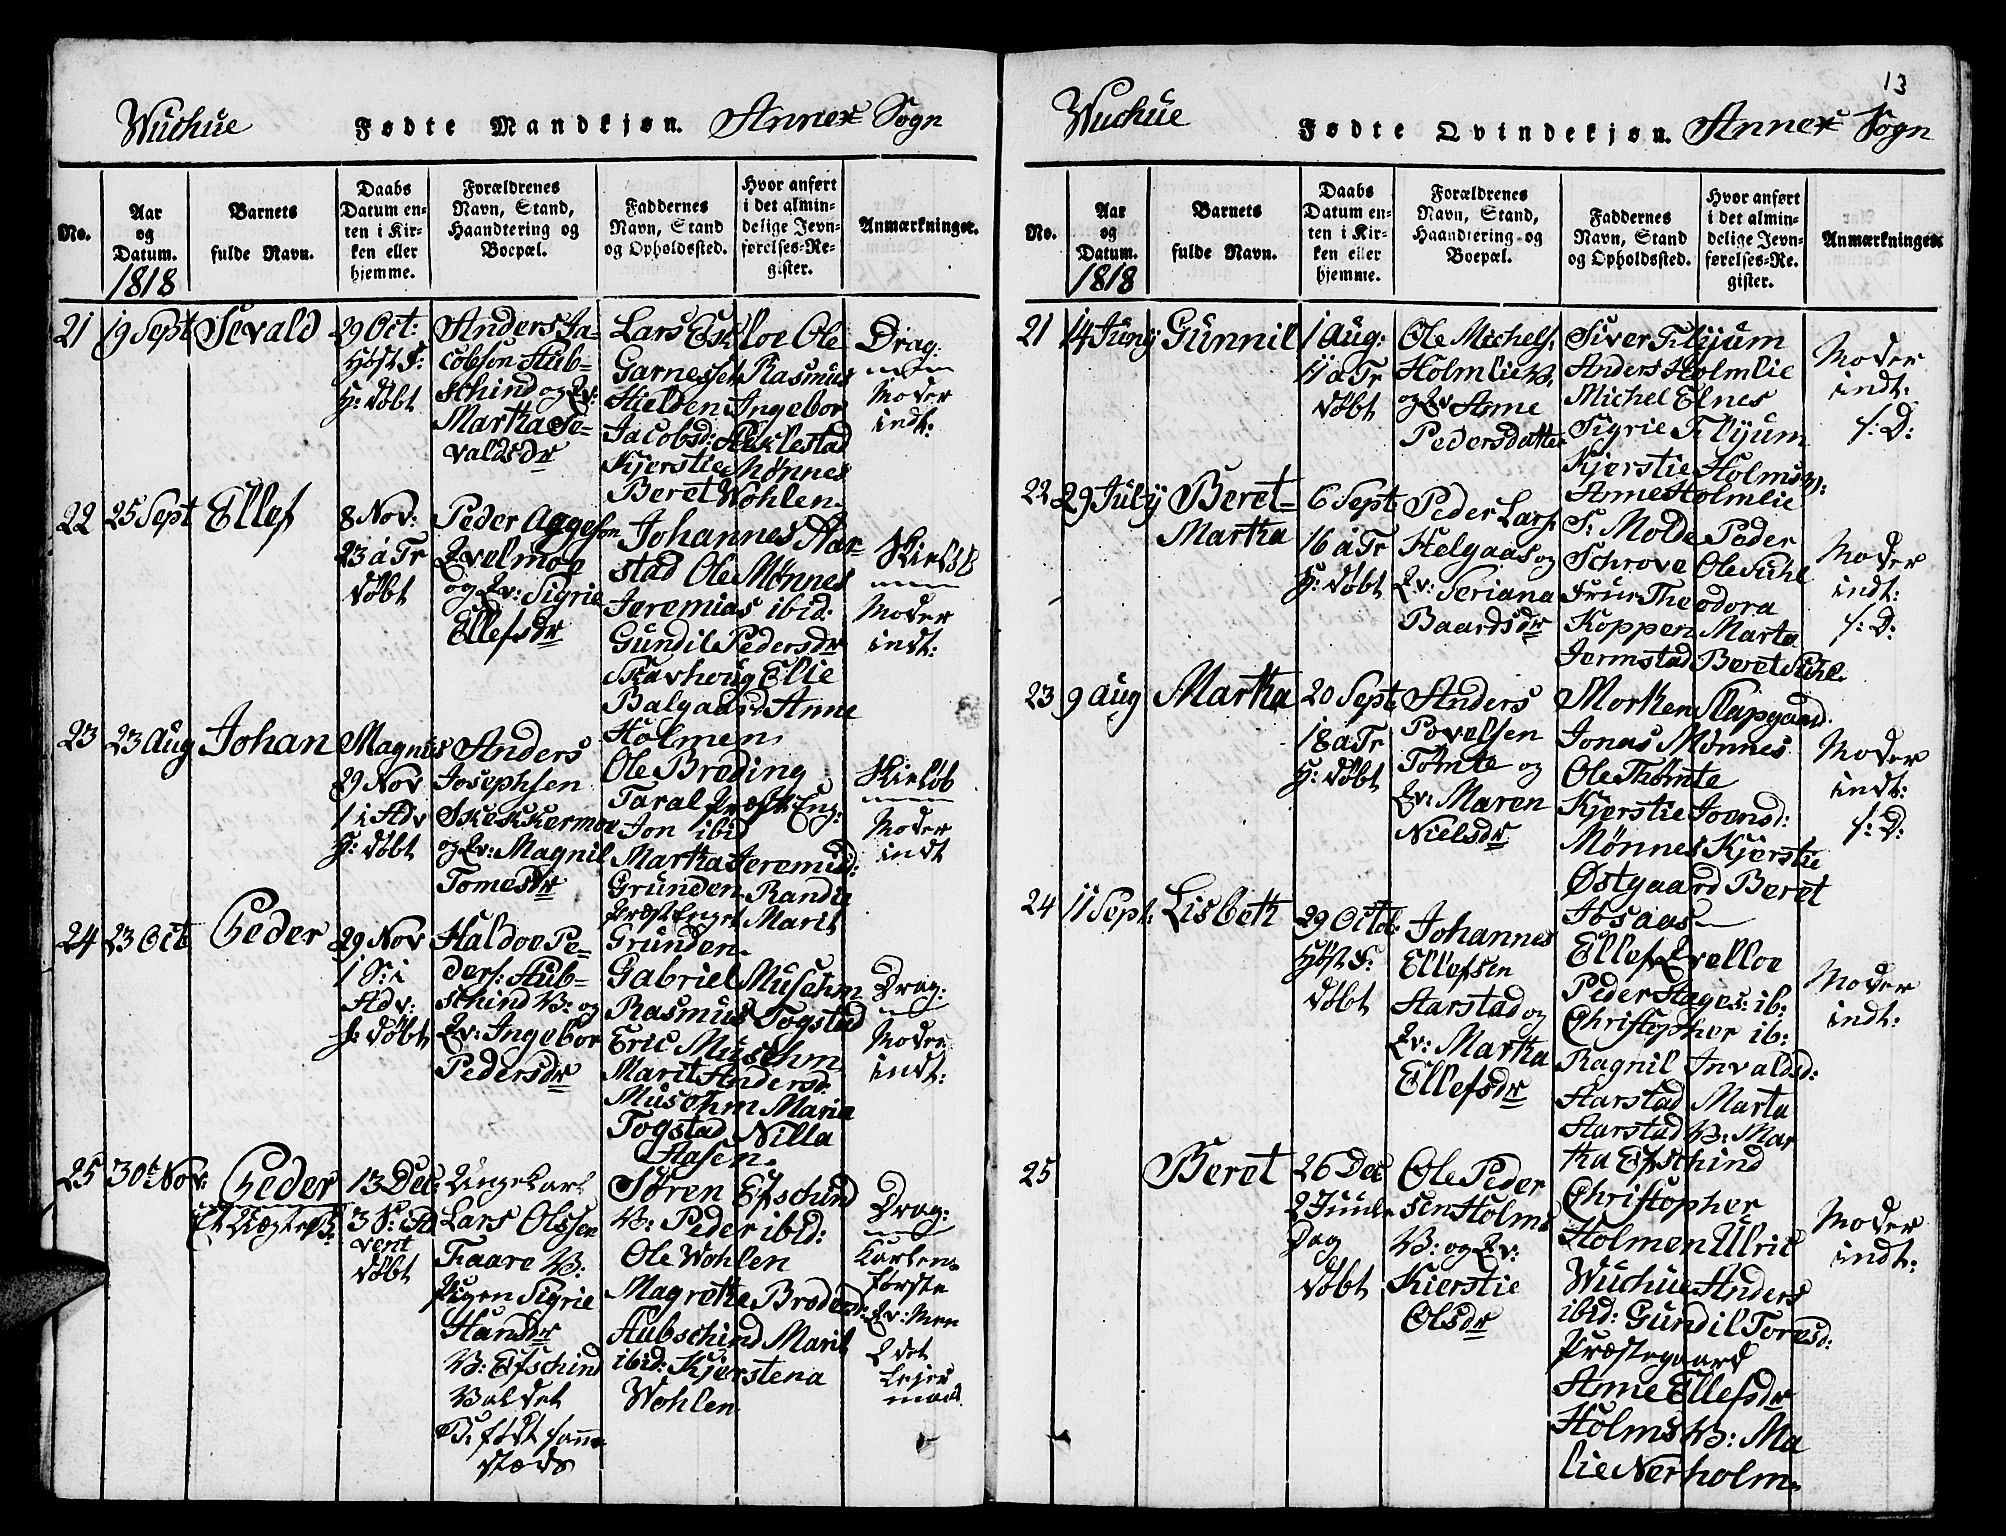 Wuchue Fødte Mandkjøn. Annex Sogn
No.
Aar
og
Datum.
1818
Barnets
fulde Navn.
Daabs
Datum en-
ten i Kir-
ken eller
hjemme.
Forældrenes
Navn, Stand,
Haandtering og
Boepæl.
Faddernes
Navn, Stand
og Opholdssted.
Hvor anført
i det almin-
delige Jevn-
førelses-Re-
gister.
Anmærkninger.
21
19 Sept
Sevald
29 Oct:
Høst F:
H: døbt
Anders Ja-
cobsen Aub-
schind og Qv:
Martha Se-
valdsdr
Lars Eskloe Ole
Garnesseth Rasmus
Hielden Ingebor
Jacobsd: Heklestad
Kjerstie Mønnes
Beret Wohlen.
Drag:
Moder
indt:
22
25 Sept
Ellef
8 Nov:
23 á Tr
døbt
Peder Aggeson
Qvelmoe
og Qv: Sigrie
Ellefsdr
Johannes Aar-
stad Ole Mønnes
Jeremias ibid:
Gundil Pedersdr
Skavhoug Elie
Balgaard Anne
Holmen
Skieløb
Moder
indt:
23
23 Aug
Johan Magnus
29 Nov
1 i Adv
H: døbt
Anders
Josephsen
Skekkermoe
og Qv: Magnil
Tomesdr
Ole Breding
Taral Præst Eng:
Jon ibid
Martha Jeremid:
Grunden Randie
Præst Enget Marit
Grunden.
Skieløb
Moder
indt
24
23 Oct
Peder
29 Nov
1 S: i
Adv:
H: døbt
Haldoe Pe-
ders: Aub-
schind V: og
Qv: Ingebor
Pedersdr
Gabriel Musehm
Rasmus Togstad
Eric Musehm
Marit Andersd:
Musehm Maria
Togstad Nilla
Aasen.
Drag:
Moder
indt:
25
30t Nov:
Peder
Et Uægte B:
13 Dec:
3 S: Ad
vent
døbt
Ungekarl
Lars Olssen
Faare V:
Pigen Sigrie
Hansdr
V: Efschind
Valdet
B. født samme
steds
Søren Efschind
V: Peder ibid:
Ole Wohlen
Magrethe Broderd:
Aubschind Marit
ibid: Kjerstena
Wohlen
Drag:
Karlens
første
Qv: Men
2 det
Lejer
maal
13
Wuchue Fødte Qvindekjøn. Annex Sogn
No.
Aar
og
Datum.
1818
Barnets
fulde Navn.
Daabs
Datum en-
ten i Kir-
ken eller
hjemme.
Forældrenes
Navn, Stand,
Haandtering og
Boepæl.
Faddernes
Navn, Stand
og Opholdssted.
Hvor anført
i det almin-
delige Jevn-
førelses-Re-
gister.
Anmærkninger.
21
14 Juny
Gunnil
1 Aug:
11 a Tr
døbt
Ole Michels:
Holmlie V:
og Qv Anne
Pedersdatter
Siver Flyum
Anders Holmlie
Michel Elnes
Sigrie Flyum
Kjerstie Holmsv:
Anne Holmlie
Moder
indt:
s: D:
22
29 July
Beret-
Martha
6 Sept
16 a Tr
H: døbt
Peder Lars:
Helgaas og
Qv: Seriana
Baardsdr
S: Molde Peder
Schrove Ole Suhl
Frue Theodora
Koppen Marta
Jermstad Beret Suhl.
Moder
indt:
s: D:
23
9 Aug
Martha
20 Sept
18 a Tr
H: døbt
Anders
Povelsen
Tømte og
Qv: Maren
Nielsdr
Morten Klapgaard.
Jonas Mønnes
Ole Thømte
Kjerstie Joensd:
Mønnes Kjerstie
Østgaard Beret
Aasaas
Moder
indt:
s: D:
24
11 Sept:
Lisbeth
29 Octob:
Høst F:
døbt
Johannes
Ellefsen
Aarstad og
Qv: Martha
Ellefsdr
Ellef Qvelloe
Peder Hages: ib:
Christopher ib:
Ragnil Invaldsd:
Aarstad Marta
Aarstad V: Mar
tha Efschind
Moder
indt:
25
Beret
26 Dec
2 Juule
Dag
døbt
Ole Peder
sen Holms
V: og Qv:
Kierstie
Olsdr
Christopher
Holmen Ulric
Wuchue Anders
ibid: Gundil Toresd:
Præstegaard
Anne Ellefsdr
Holms V: Ma
lie Nerholm.
Moder
indt: